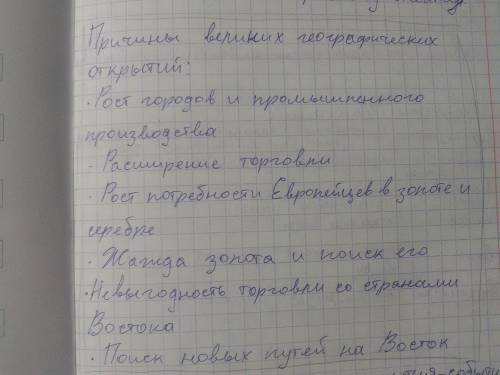 Причины великих географических
открытий:
· Рост городов и промышленного
производства
· Расширение торговли
· Рост потребности Европейцев в золоте и
серебре
· Жажда золота и поиск его
· Невыгодность торговли со странами
Востока
· Поиск новых путей на Восток